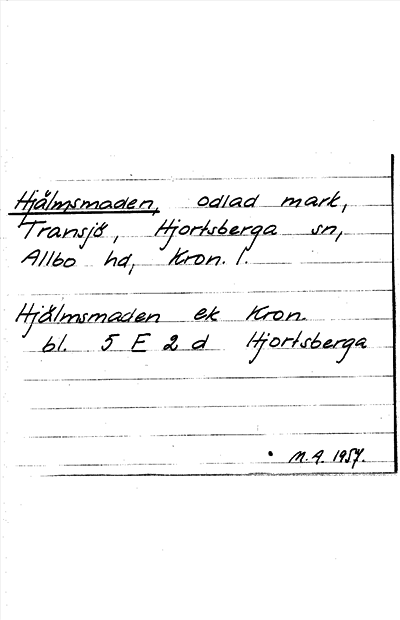 Hjälmsmaden, odlad mark,
Transjö, Hjortsberga sn,
Allbo hd, Kron. l.
Hjälmsmaden ek Kron.
bl. 5 E 2 d Hjortsberga
M.A. 1957.